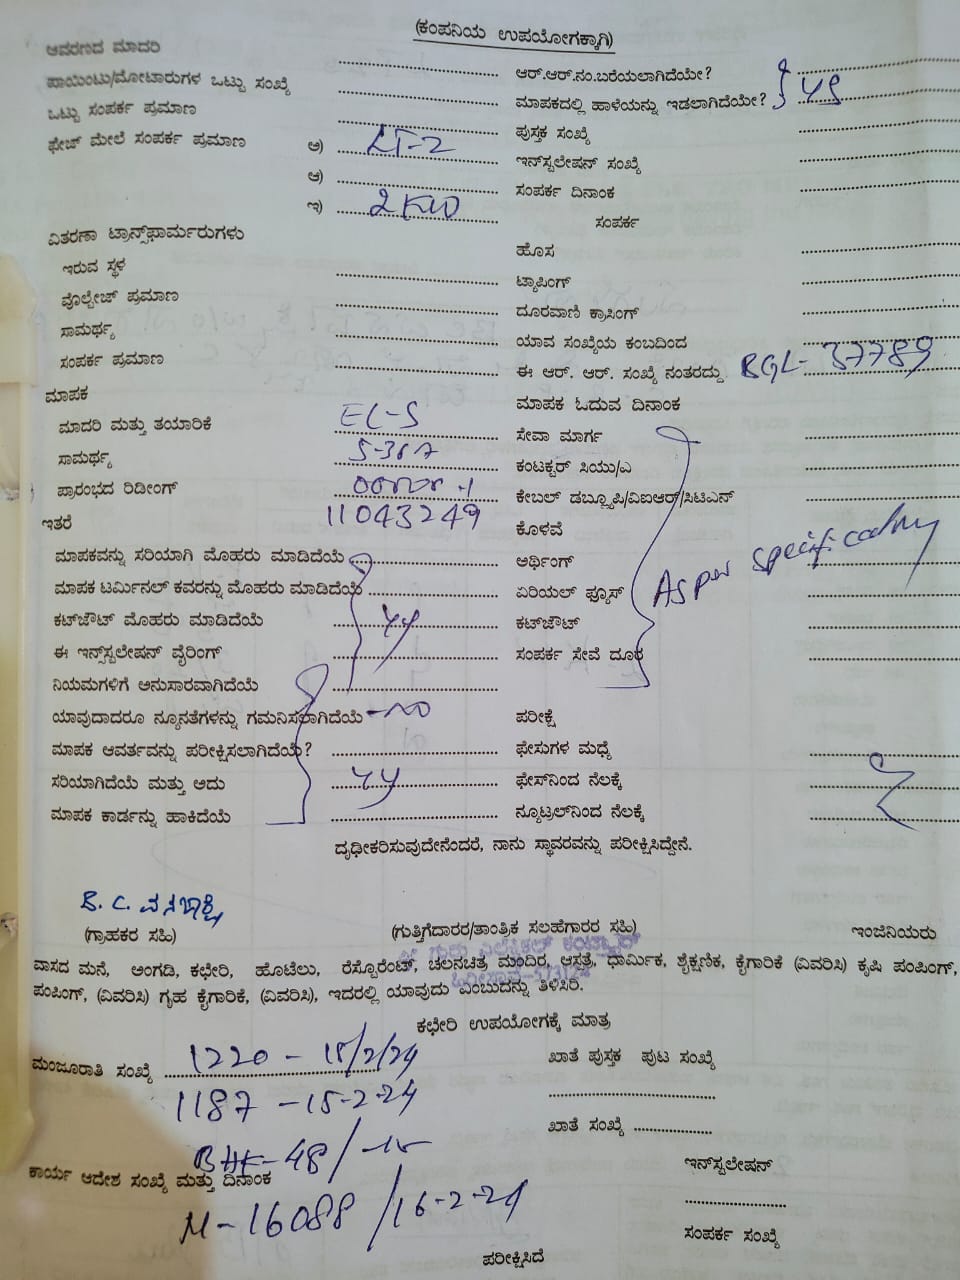 (ಕಂಪನಿಯ ಉಪಯೋಗಕ್ಕಾಗಿ)
ಆವರಣದ ಮಾದರಿ
ಪಾಯಿಂಟು/ಮೋಟಾರುಗಳ ಒಟ್ಟು ಸಂಖ್ಯೆ
ಒಟ್ಟು ಸಂಪರ್ಕ ಪ್ರಮಾಣ
ಫೇಜ್ ಮೇಲೆ ಸಂಪರ್ಕ ಪ್ರಮಾಣ ಅ) LT-2
ಆ)
ಇ) 2KW
ವಿತರಣಾ ಟ್ರಾನ್ಸ್‌ಫಾರ್ಮರುಗಳು
ಇರುವ ಸ್ಥಳ
ವೊಲ್ಟೇಜ್ ಪ್ರಮಾಣ
ಸಾಮರ್ಥ್ಯ
ಸಂಪರ್ಕ ಪ್ರಮಾಣ
ಮಾಪಕ
ಮಾದರಿ ಮತ್ತು ತಯಾರಿಕೆ EL-S
ಸಾಮರ್ಥ್ಯ
ಪ್ರಾರಂಭದ ರಿಡೀಂಗ್
11043249
ಇತರೆ
ಮಾಪಕವನ್ನು ಸರಿಯಾಗಿ ಮೊಹರು ಮಾಡಿದೆಯೆ
ಮಾಪಕ ಟರ್ಮಿನಲ್ ಕವರನ್ನು ಮೊಹರು ಮಾಡಿದೆಯೆ
ಕಟ್‌ಜೌಟ್ ಮೊಹರು ಮಾಡಿದೆಯೆ
ಈ ಇನ್ಸ್‌ಸ್ಟಲೇಷನ್ ವೈರಿಂಗ್
ನಿಯಮಗಳಿಗೆ ಅನುಸಾರವಾಗಿದೆಯೆ
ಯಾವುದಾದರೂ ನ್ಯೂನತೆಗಳನ್ನು ಗಮನಿಸಲಾಗಿದೆಯೆ - no
ಮಾಪಕ ಆವರ್ತವನ್ನು ಪರೀಕ್ಷಿಸಲಾಗಿದೆಯೆ?
ಸರಿಯಾಗಿದೆಯೆ ಮತ್ತು ಅದು
ಮಾಪಕ ಕಾರ್ಡನ್ನು ಹಾಕಿದೆಯೆ
ಆರ್.ಆರ್.ನಂ.ಬರೆಯಲಾಗಿದೆಯೇ?
ಮಾಪಕದಲ್ಲಿ ಹಾಳೆಯನ್ನು ಇಡಲಾಗಿದೆಯೇ?
ಪುಸ್ತಕ ಸಂಖ್ಯೆ
ಇನ್‌ಸ್ಟಲೇಷನ್ ಸಂಖ್ಯೆ
ಸಂಪರ್ಕ ದಿನಾಂಕ
ಸಂಪರ್ಕ
ಹೊಸ
ಟ್ಯಾಪಿಂಗ್
ದೂರವಾಣಿ ಕ್ರಾಸಿಂಗ್
ಯಾವ ಸಂಖ್ಯೆಯ ಕಂಬದಿಂದ
ಈ ಆರ್. ಆರ್. ಸಂಖ್ಯೆ ನಂತರದ್ದು BGL-37789
ಮಾಪಕ ಓದುವ ದಿನಾಂಕ
ಸೇವಾ ಮಾರ್ಗ
ಕಂಟಕ್ಟರ್ ಸಿಯು/ಎ
ಕೇಬಲ್ ಡಬ್ಲ್ಯೂಪಿ/ವಿಐಆರ್/ಸಿಟಿಎನ್
ಕೊಳವೆ
ಅರ್ಥಿಂಗ್
ಏರಿಯಲ್ ಫ್ಯೂಸ್ As per
ಕಟ್‌ಜೌಟ್
ಸಂಪರ್ಕ ಸೇವೆ ದೂರ
ಪರೀಕ್ಷೆ
ಫೇಸುಗಳ ಮಧ್ಯೆ
ಫೇಸ್‌ನಿಂದ ನೆಲಕ್ಕೆ
ನ್ಯೂಟ್ರಲ್‌ನಿಂದ ನೆಲಕ್ಕೆ
ದೃಢೀಕರಿಸುವುದೇನೆಂದರೆ, ನಾನು ಸ್ಥಾವರವನ್ನು ಪರೀಕ್ಷಿಸಿದ್ದೇನೆ.
(ಗ್ರಾಹಕರ ಸಹಿ) (ಗುತ್ತಿಗೆದಾರರ/ತಾಂತ್ರಿಕ ಸಲಹೆಗಾರರ ಸಹಿ) ಇಂಜಿನಿಯರು
ವಾಸದ ಮನೆ, ಅಂಗಡಿ, ಕಛೇರಿ, ಹೊಟೆಲು, ರೆಸ್ಟೊರೆಂಟ್, ಚಲನಚಿತ್ರ ಮಂದಿರ, ಆಸ್ಪತ್ರೆ, ಧಾರ್ಮಿಕ, ಶೈಕ್ಷಣಿಕ, ಕೈಗಾರಿಕೆ (ವಿವರಿಸಿ) ಕೃಷಿ ಪಂಪಿಂಗ್,
ಪಂಪಿಂಗ್, (ವಿವರಿಸಿ) ಗೃಹ ಕೈಗಾರಿಕೆ, (ವಿವರಿಸಿ), ಇದರಲ್ಲಿ ಯಾವುದು ಎಂಬುದನ್ನು ತಿಳಿಸಿರಿ.
ಕಛೇರಿ ಉಪಯೋಗಕ್ಕೆ ಮಾತ್ರ
ಮಂಜೂರಾತಿ ಸಂಖ್ಯೆ 1220 - 15/2/24
1187 - 15-2-24
ಖಾತೆ ಪುಸ್ತಕ ಪುಟ ಸಂಖ್ಯೆ
ಖಾತೆ ಸಂಖ್ಯೆ
ಕಾರ್ಯ ಆದೇಶ ಸಂಖ್ಯೆ ಮತ್ತು ದಿನಾಂಕ
M-16088 / 16-2-24
ಇನ್‌ಸ್ಟಲೇಷನ್
ಸಂಪರ್ಕ ಸಂಖ್ಯೆ
ಪರೀಕ್ಷಿಸಿದೆ